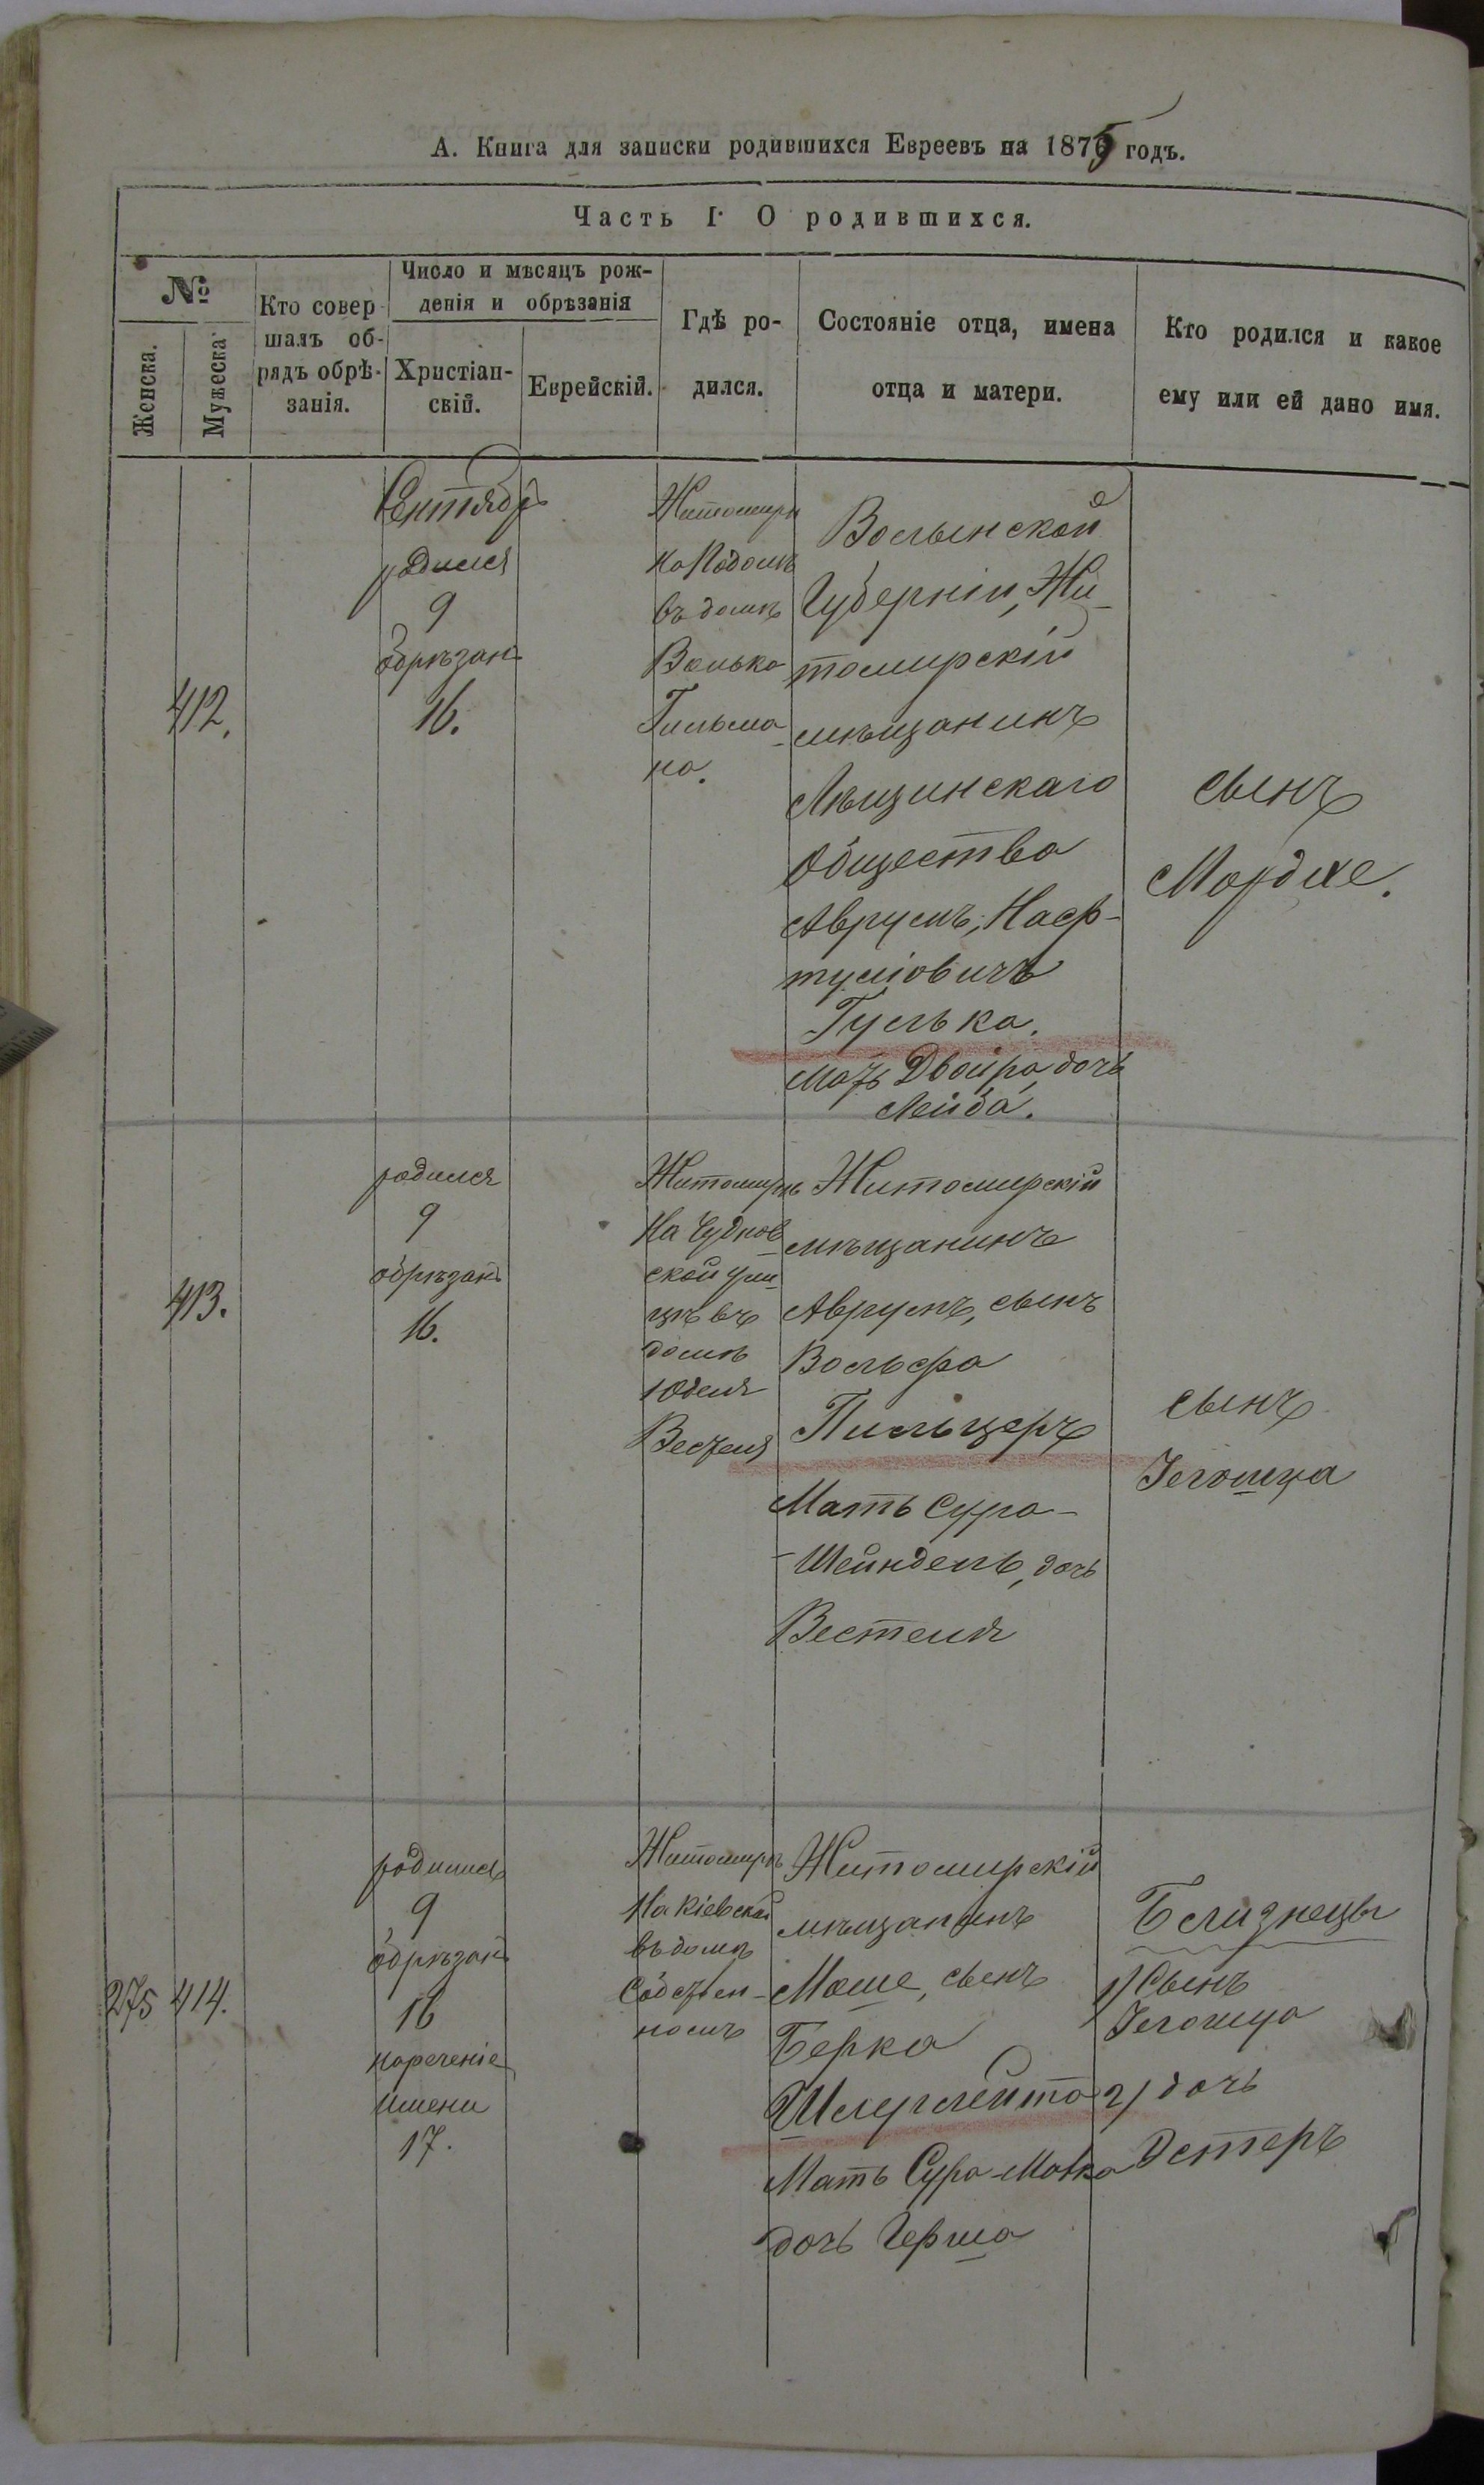 А. Книга для записки родившихся Евреевъ на 1875 годъ.
Часть I. О родившихся.
№
Женска.
Мужеска
Кто совер-
шалъ об-
рядъ обрѣ-
занія.
Число и мѣсяцъ рож-
денія и обрѣзанія
Христіан-
скій.
Еврейскій.
Гдѣ ро-
дился.
Состояніе отца, имена
отца и матери.
Кто родился и какое
ему или ей дано имя.
412.
Сентябрь
родился
9
обрѣзанъ
16.
Житомирѣ
на Подолѣ
въ домѣ
Волько
Гильма-
на.
Волынской
Губерніи, Жи-
томирскій
мѣщанинъ
Лѣщинскаго
Общества
Аврумъ, Наф-
туліовичъ
Гулько.
мать Двойра, дочь
Лейба.
сынъ
Мордхе.
413.
родился
9
обрѣзанъ
16.
Житомирѣ
На Чуднов-
ской ули-
цѣ въ
домѣ
Юделя
Вестеля
Житомирскій
мѣщанинъ
Аврумъ, сынъ
Вольфа
Пильцеръ
Мать Сура-
-Шейндель, дочь
Вестеля
сынъ
Іегошуа
275 414.
родились
9
обрѣзанъ
16
нареченіе
имени
17.
Житомирѣ
На Кіевской
въ домѣ
Собствен-
номъ
Житомирскій
мѣщанинъ
Моше, сынъ
Берка
Мать Сура-Малка
дочь Герша
Близнецы
1) Сынъ
Іегошуа
2) дочь
Эстеръ